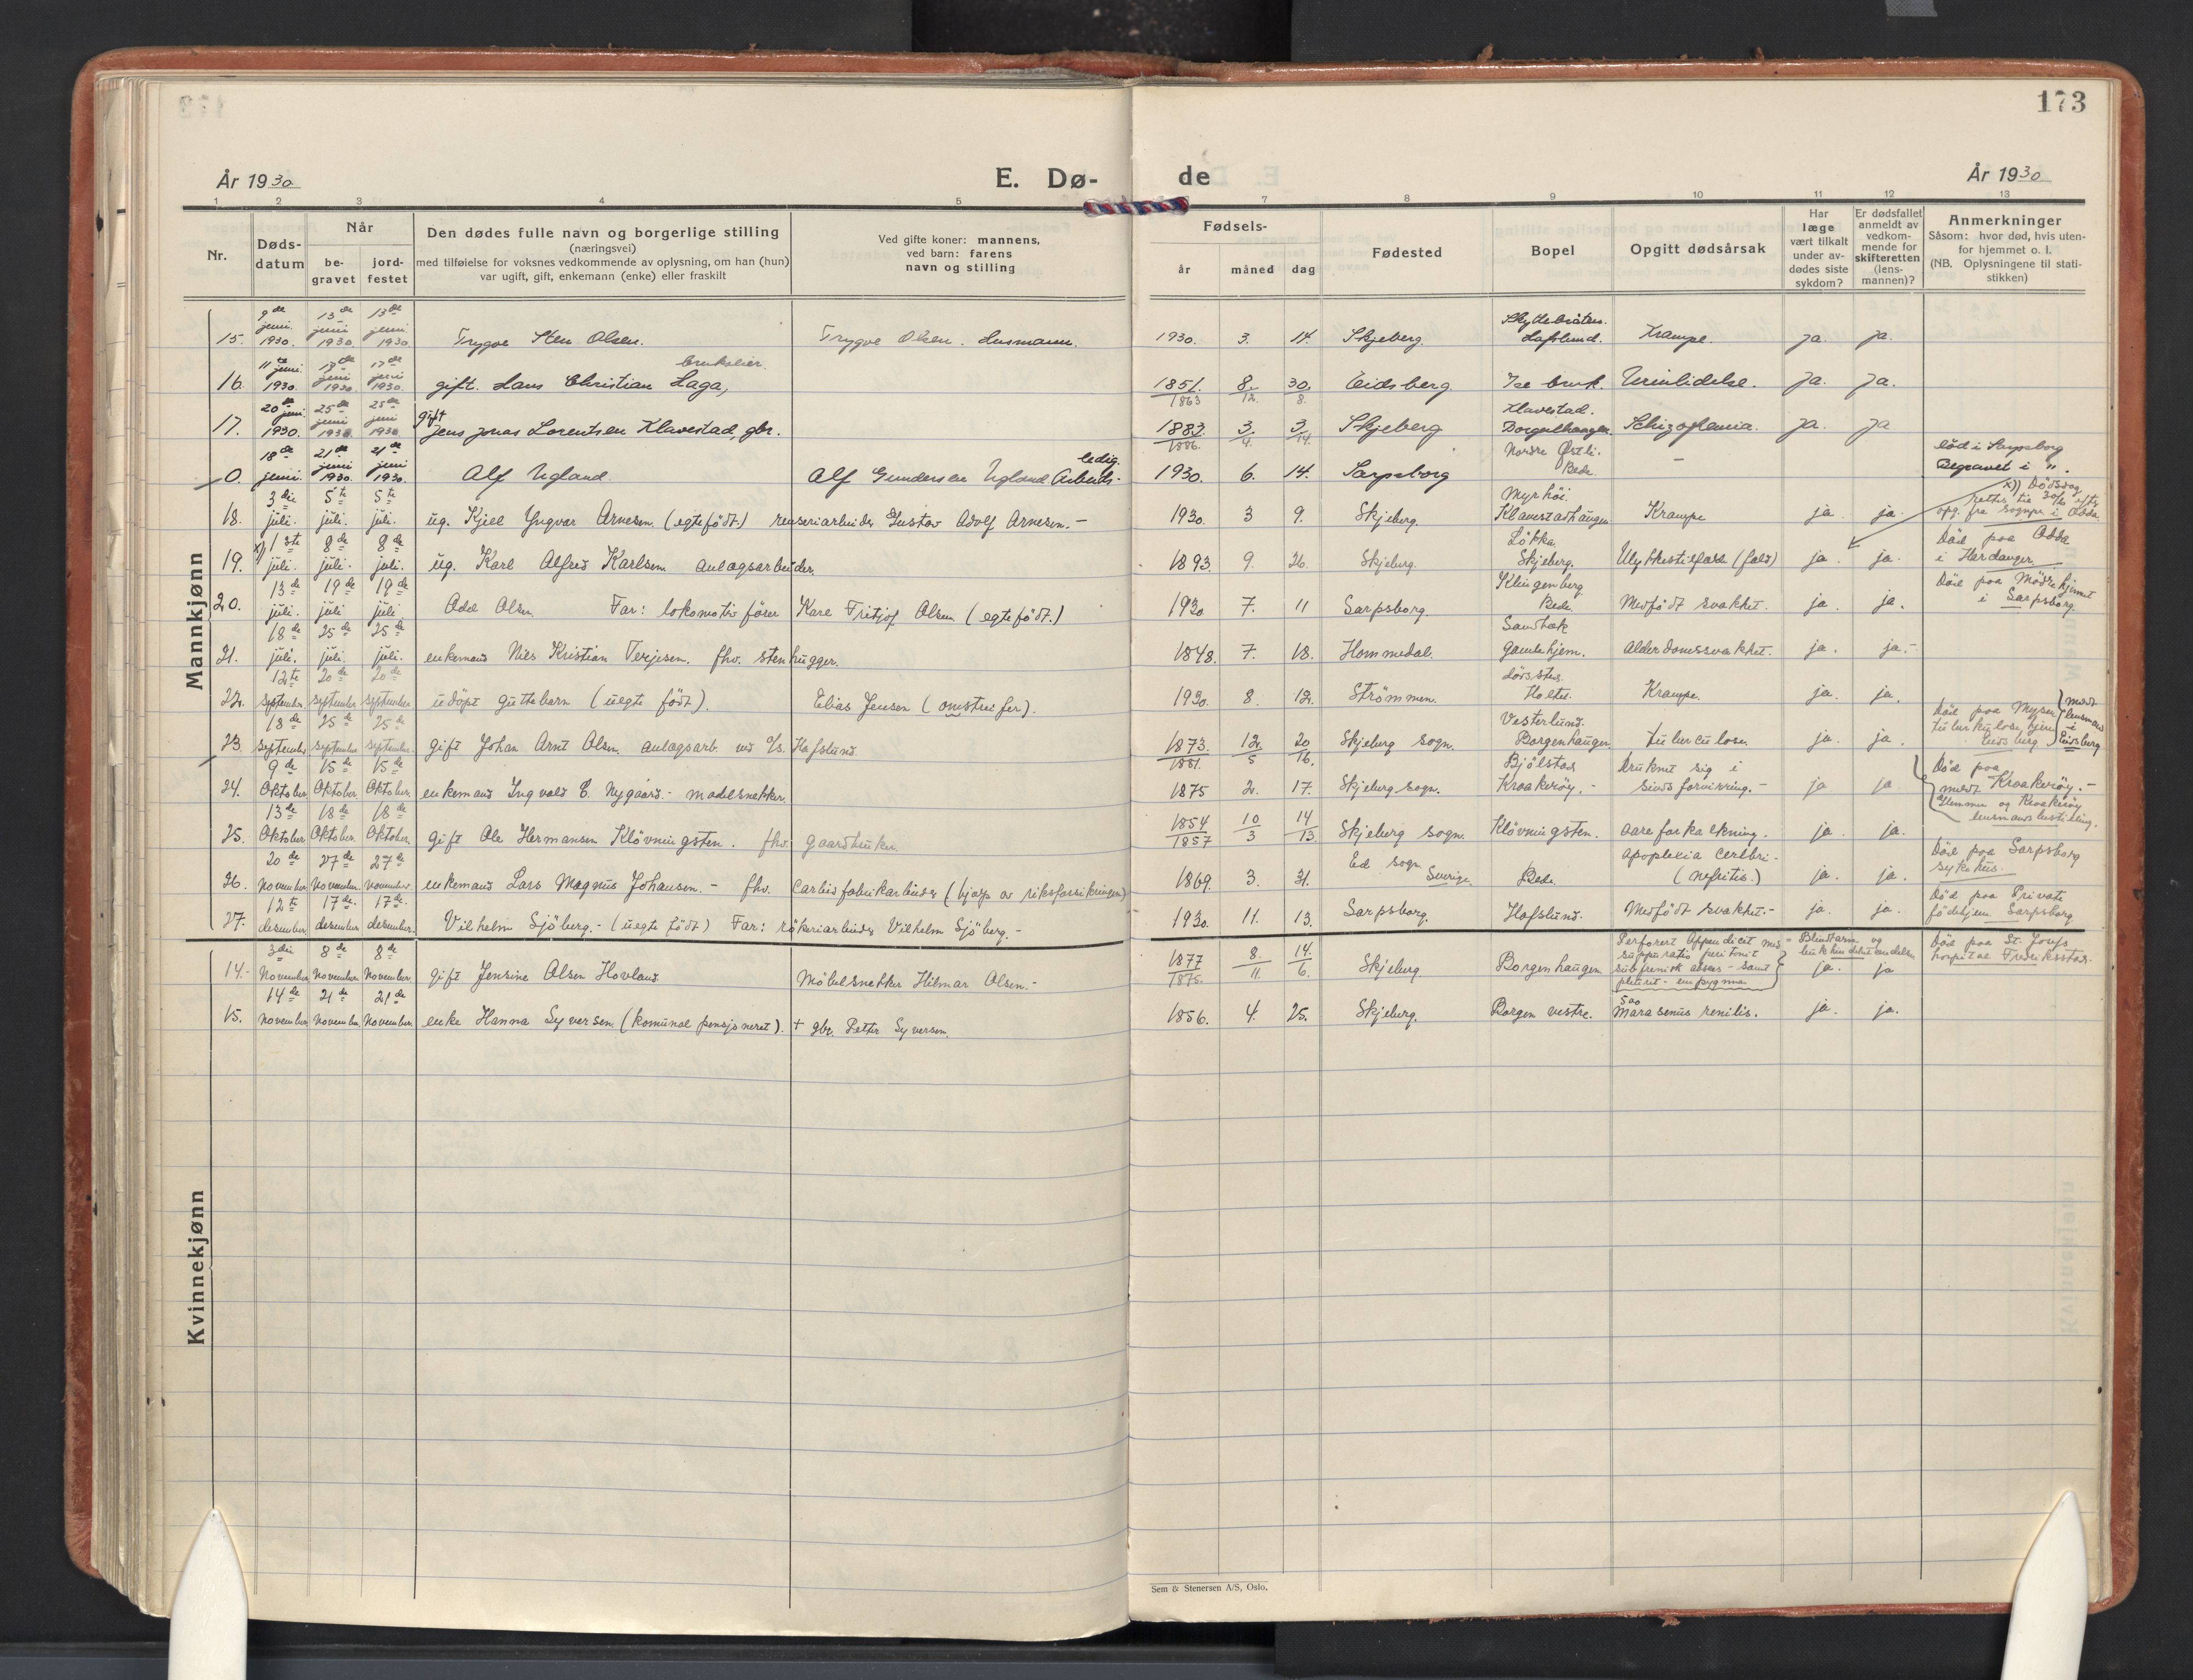 173
År 1930
E. Dø-
de
År 1930
1 2 3 4 5 7 8 9 10 11 12 13
Nr.
Døds-
datum
Når
be-
gravet
jord-
festet
Den dødes fulle navn og borgerlige stilling
(næringsvei)
med tilføielse for voksnes vedkommende av oplysning, om han (hun)
var ugift, gift, enkemann (enke) eller fraskilt
Ved gifte koner: mannens,
ved barn: farens
navn og stilling
Fødsels-
år måned dag
Fødested
Bopel
Opgitt dødsårsak
Har
læge
vært tilkalt
under av-
dødes siste
sykdom?
Er dødsfallet
anmeldt av
vedkom-
mende for
skifteretten
(lens-
mannen)?
Anmerkninger
Såsom: hvor død, hvis uten-
for hjemmet o. l.
(NB. Oplysningene til stati-
stikken)
Mannkjønn
9de 13de 13de
juni juni juni
15. 1930. 1930. 1930. Trygve Sten Olsen. Trygve Olsen. Husmann. 1930. 3. 14. Skjeberg. Hafslund. Krampe. ja. ja.
juni 17de 17de brukseier.
juni juni
16. 1930. 1930. 1930. gift. Hans Christian Haga, 1851. 8. 30. Eidsberg Ise bruk. Urinlidelse. ja. ja.
1863 12. 8.
20de juni. 25de 25de gift Klavestad.
juni juni
17. 1930. 1930 1930 Jens Jonas Lorentsen Klavestad, gbr. 1883. 3. 3. Skjeberg Borgenhaugen. ja. ja
1886. 4. 14.
18de 21de 21de ledig. Nordre Østli. død i Sarpsborg
juni juni
0. juni. 1930. 1930. Alf Ugland. Alf Gundersen Ugland Arbeids- 1930. 6. 14. Sarpsborg Bede. - Begravet i ".
3die 5te 5te Myrhöi. x) Dødsdag
rettes til 30/6 efter
18. juli. juli. juli. ug. Kjell Yngvar Arnesen. (egtefödt.) renseriarbeider Gustav Adolf Arnesen. - 1930. 3 9. Skjeberg. Klavestadhaugen Krampe ja ja. opg. fra sognepr. i Odda.
x) 1ste 8de 8de Lökka. Död paa Odda
19. juli. juli. juli. ug. Karl Alfred Karlsen anlagsarbeider. 1893. 9. 26. Skjeberg. Skjeberg. Ulykkestilfælde (fald) ja. ja. i Hardanger.
13de 19de 19de Klingenberg Död paa Mödrehjemmet
20. juli. juli juli Odd Olsen. Far: lokomotivfører Karl Fritjof Olsen (egtefödt.) 1930 7. 11 Sarpsborg. Bede. Medfödt svakhet. ja. ja. i Sarpsborg.
18de 25de 25de Sandbæk
21. juli. juli. juli. enkemand Nils Kristian Terjesen. fhv. stenhugger. 1848. 7. 18. Hommedal. gamlehjem. Alderdomssvakhet. ja. ja.-
12te 20de 20de dödssted.
22. september september september udöpt guttebarn (uegte födt). Elias Jensen (omstreifer). 1930. 8. 12. Strömmen. Holte. Krampe. ja. ja.
18de 25de 25de Vesterlund. Död paa Mysen
tuberkulosehjem
meldt
lensmand
i
Eidsberg
23. september september september. gift Johan Arnt Olsen. anlagsarb. ved A/S. Hafslund. 1873. 12. 20 Skjeberg sogn. Borgenhaugen. tuberculose. ja. ja. Eidsberg.
1881. 5 16.
9de 15de 15de Bjölstad Druknet sig i Död paa
24. Oktober Oktober. Oktober. enkemand Ingvald E. Nygaard. - modelsnekker. 1875 2. 17. Skjeberg sogn. Kraakeröy. - sindsforvirring. - ja ja meldt Kraakeröy. -
13de 18de 18de Glemme og Kraakeröy
lensmandsbestilling.
25. Oktober. Oktober. Oktober. gift Ole Hermansen Klövningsten. fhv. gaardbruker. 1854 10 14 Skjeberg sogn. Klövningsten. aareforkalkning. ja. ja.
1857 3 13.
20de 27de 27de Ed sogn apoplexia cerebri- Död paa Sarpsborg
26. November November. November enkemand Lars Magnus Johansen. - fhv. carbidfabrikarbeider (hjælp av riksforsikringen) 1869. 3. 31. Sverige. Bede. (nefritis.) ja. ja. sykehus. -
12te 17de. 17de. Död paa Private
27. desember desember desember. Vilhelm Sjöberg. - (uegte födt) Far: rökeriarbeider Vilhelm Sjöberg. - 1930. 11. 13. Sarpsborg. Hafslund. Medfödt svakhet. - ja. ja. födehjem Sarpsborg
Kvinnekjønn
3die 8de 8de Perforert Appendicit med
suppurativ peritonit
subfrenisk absces - samt
pleurit - empyema
Blindtarm og
14. - November November. November. gift Jensine Olsen Hovland. Möbelsnekker Hilmar Olsen. - 1877 8. 14. Skjeberg Borgenhaugen ja. ja Död paa St. Josefs
hospital Fredriksstad.
1875. 11. 6.
14de 21de 21de
15. November November. November. enke Hanna Syversen. (komunal pensjoneret). + gbr. Petter Syversen. 1856. 4. 25. Skjeberg. Borgen vestre. marasmus senilis. ja. ja.
Sem & Stenersen A/S, Oslo.